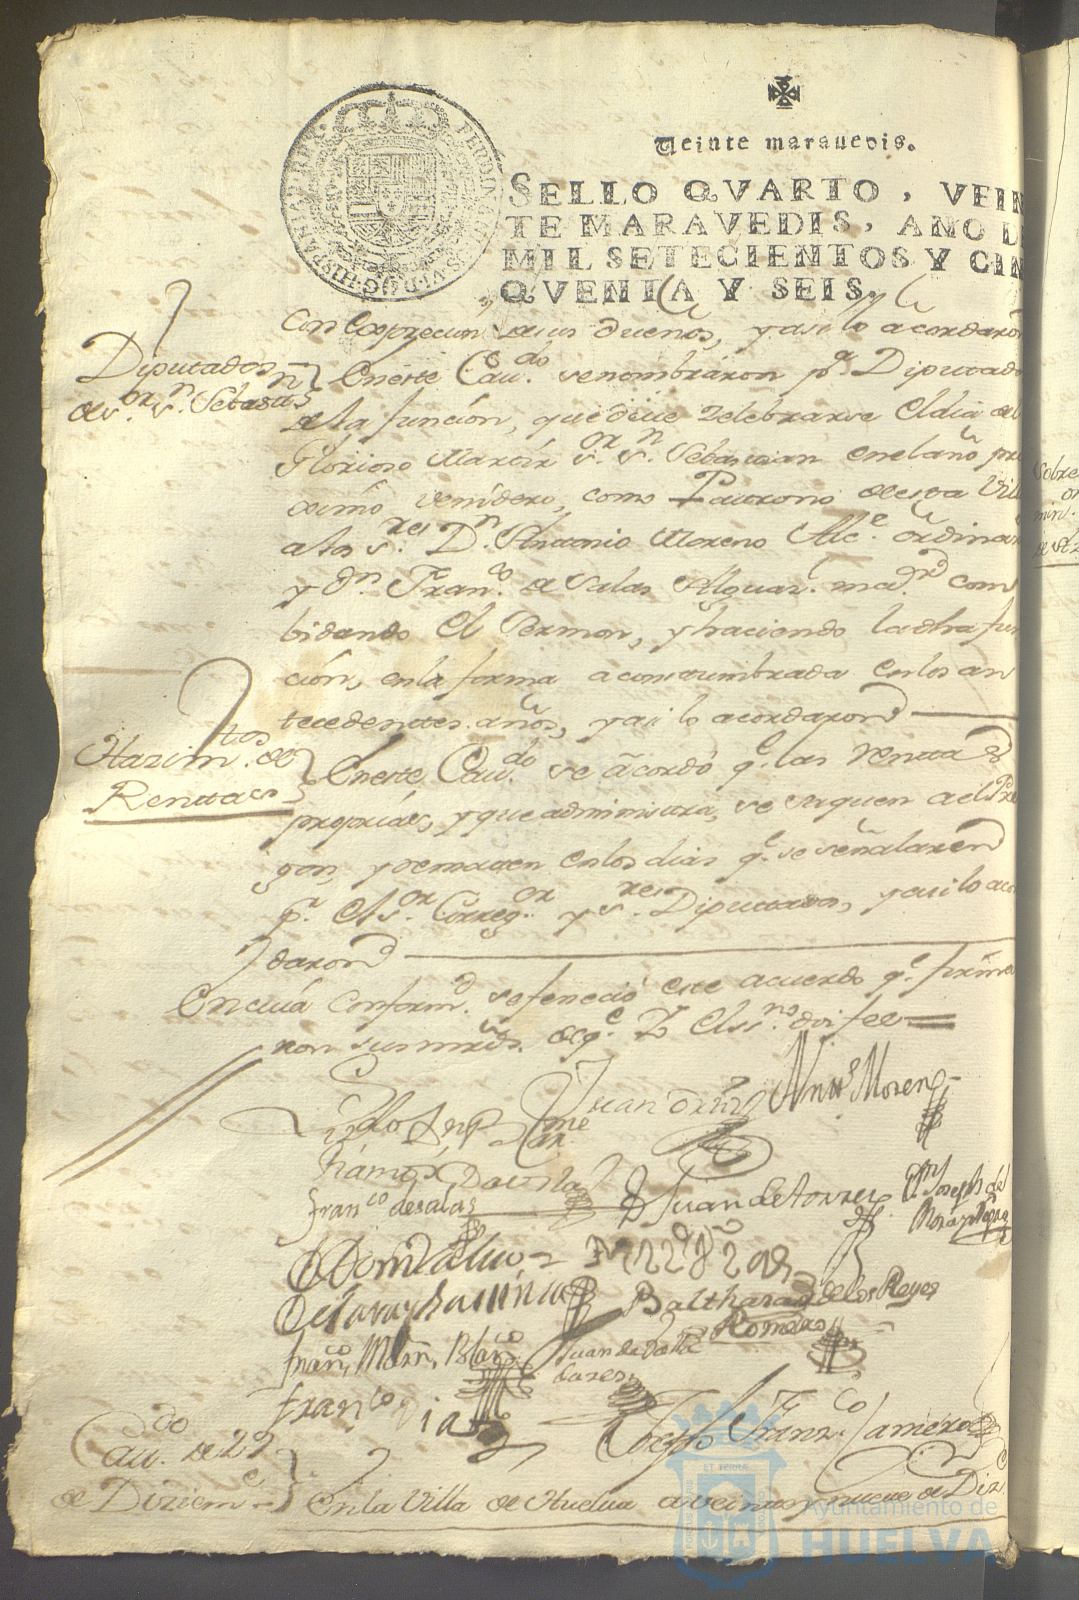 Veinte maravedis.
SELLO QVARTO, VEIN
TE MARAVEDIS, AÑO D
MIL SETECIENTOS Y CIN
QVENTA Y SEIS.
FERDINANDUS VI D G HISPANIAR REX
dueños, y asi lo acordaron
Diputados
de sor. sn. Sebastn
En este Cavdo. se nombraron pr. Diputado
de la función, que deve zelebrarse el dia del
Glorioso Martir sor. sn. Sebastian en el año pro
ximo venidero, como Patrono de esta Villa
a los sres. Dn. Antonio Moreno Alce. ordinar
y Dn. Franco. de Salas Alguaz. mor. com
bidando el Sermon, y haciendo la dha fun
ción, en la forma acostumbrada en los an
tecedenttes años, y asi lo acordaron
Hazimtos. de
Renttas
En este Cavdo. se acordó qe. las Renttas
proprias, y que administra, se saquen a el Pre
gon, y rematen en los dias qe. se señalaren
pr. el sor. Corregor. y sres. Diputados, y asi lo acor
daron
En cuia conformd. se feneció este acuerdo qe. firma
ron sus mrds. de qe. Yo el ssno. doi fee
Juan Ortiz Antto Moreno
Ramos Davila
Franco de Salas Juan de Torres Dn Joseph de
Balthasar de los Reyes
Romero
Franco, Marn, Blanco Juan de
Franco Diaz
Franco. Camero
Cavdo. de 29
de Diziembe.
En la Villa de Huelva a veinte y nueve de Diz
Ayuntamiento de
HUELVA